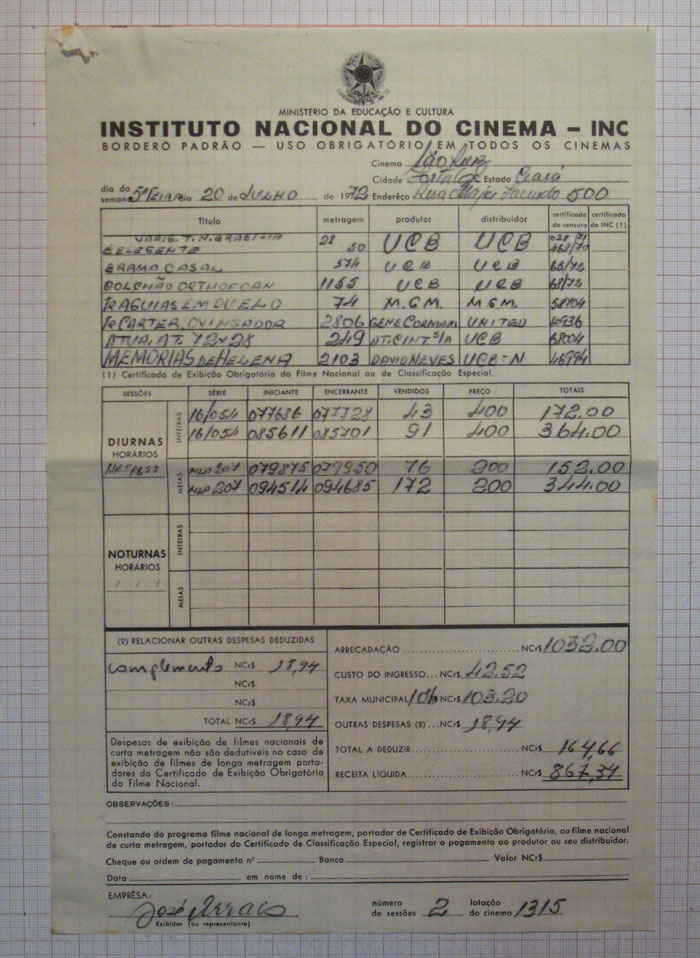 MINISTÉRIO DA EDUCAÇÃO E CULTURA
INSTITUTO NACIONAL DO CINEMA – INC
BORDERÔ PADRÃO — USO OBRIGATÓRIO EM TODOS OS CINEMAS
Cinema São Luiz
Cidade Fortaleza Estado Ceará
dia da semana 5ª FEIRA dia 20 de JULHO de 1972 Endereço Rua Major Facundo 500
Título metragem produtor distribuidor certificado de censura certificado do INC (1)
VARIG. T. N. BRASILIA 28
50 UCB UCB
BRAMA CASAL 574 UCB UCB 65/72
COLCHÃO ORTHOFOAN 1155 UCB UCB 68/72
TR AGUIAS EM DUELO 74 M.G.M. M.G.M. 58704
TR CARTER, O VINGADOR 2806 GENE CORMAM UNITED
ATUA. AT. 72x28 249 AT.CINT S/A UCB 68004
MEMÓRIAS DE HELENA 2103 DAVID NEVES UCB-N 46994
(1) Certificado de Exibição Obrigatória do Filme Nacional ou de Classificação Especial.
SESSÕES SÉRIE INICIANTE ENCERRANTE VENDIDOS PREÇO TOTAIS
DIURNAS
HORÁRIOS
INTEIRAS
16/054 077686 077728 43 400 172.00
16/054 085611 085701 91 400 364.00
MEIAS
207 079875 079950 76 200 152.00
207 094514 094685 172 200 344.00
NOTURNAS
HORÁRIOS
/ / /
INTEIRAS
MEIAS
(2) RELACIONAR OUTRAS DESPESAS DEDUZIDAS
complemento NCr$ 18,94
NCr$
NCr$
TOTAL NCr$ 18,94
Despesas de exibição de filmes nacionais de
curta metragem não são dedutíveis no caso de
exibição de filmes de longa metragem porta-
dores do Certificado de Exibição Obrigatória
do Filme Nacional.
ARRECADAÇÃO NCr$ 1032.00
CUSTO DO INGRESSO... NCr$ 42.52
TAXA MUNICIPAL 10% NCr$ 103.20
OUTRAS DESPESAS (2)... NCr$ 18,94
TOTAL A DEDUZIR NCr$ 164,66
RECEITA LÍQUIDA NCr$ 867,34
OBSERVAÇÕES:
Constando do programa filme nacional de longa metragem, portador de Certificado de Exibição Obrigatória, ou filme nacional
de curta metragem, portador do Certificado de Classificação Especial, registrar a pagamento ao produtor ou seu distribuidor.
Cheque ou ordem de pagamento nº Banco Valor NCr$
Data em nome de:
EMPRÊSA:
José
Exibidor (ou representante)
número de sessões 2 lotação do cinema 1315